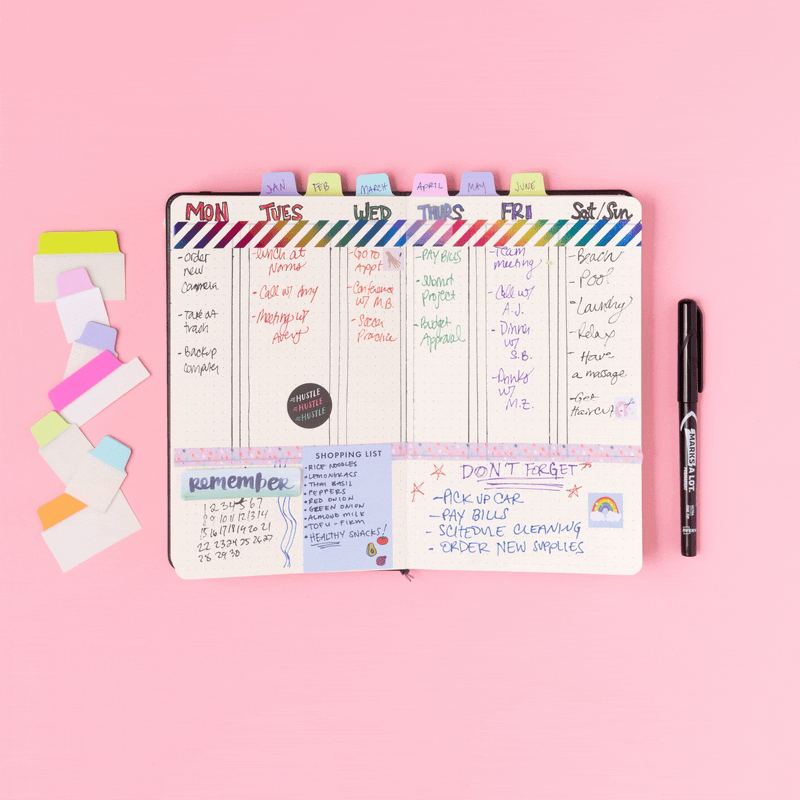 JAN
FEB
MARCH
APRIL
MAY
JUNE
MON
TUES
WED
THURS
FRI
Sat/Sun
-order
new
camera
-Take out
trash
-Backup
computer
-Lunch at
Norms
-Call w/ Amy
-Meeting w/
Avery
-Go to
Appt
-Conference
w/ M.B.
-Soccer
Practice
-PAY Bills
-Submit
Project
-Budget
Approval
-Team
meeting
-Call w/
A.J.
-Dinner
w/
S.B.
-Drinks
w/
M.Z.
-Beach
-Pool
-Laundry
-Relax
-Have
a massage
-Get
Haircut
#HUSTLE
#HUSTLE
#HUSTLE
Remember
1 2 3 4 5 6 7
8 9 10 11 12 13 14
15 16 17 18 19 20 21
22 23 24 25 26 27
28 29 30
SHOPPING LIST
•RICE NOODLES
•LEMONGRASS
•THAI BASIL
•PEPPERS
•RED ONION
•GREEN ONION
•ALMOND MILK
•TOFU - FIRM
•HEALTHY SNACKS!
DON'T FORGET
-PICK UP CAR
-PAY BILLS
- SCHEDULE CLEANING
- ORDER NEW SUPPLIES
MARKS A LOT
PERMANENT